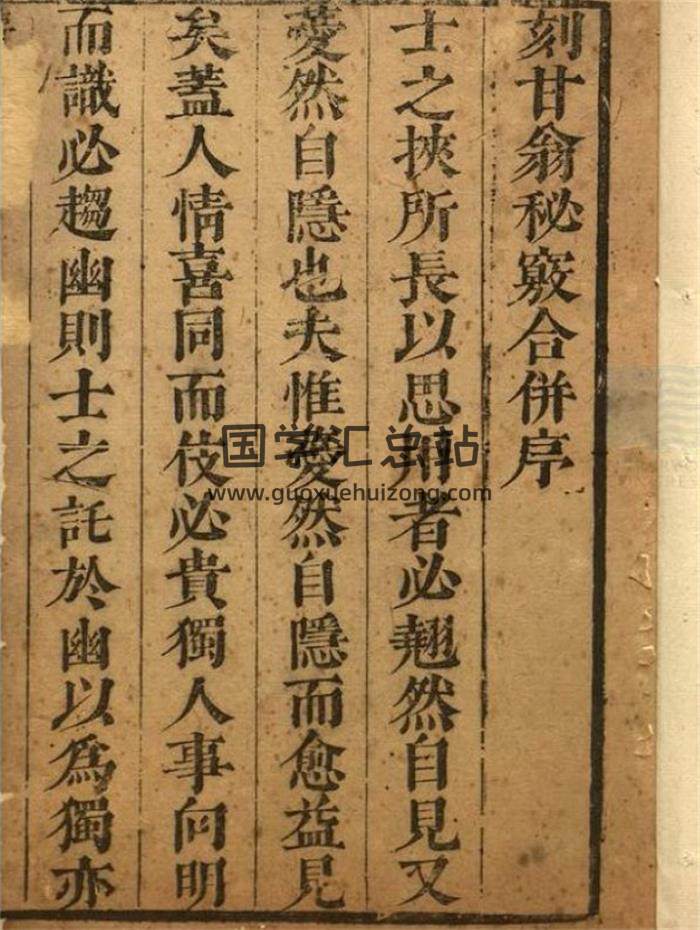 刻甘翁秘竅合併序
士之挾所長以思用者必翹然自見又
薆然自隱也夫惟薆然自隱而愈益見
矣蓋人情喜同而伎必貴獨人事向明
而識必趨幽則士之託於幽以爲獨亦
国学汇总站
www.guoxuehuizong.com